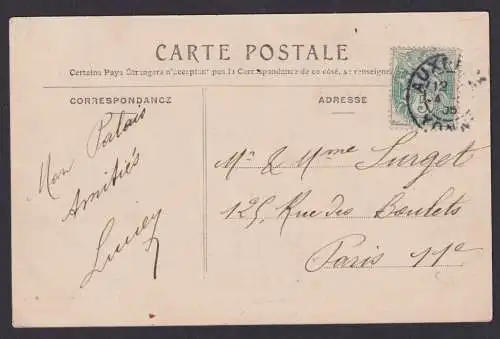 CARTE POSTALE
Certains Pays Etrangers n'acceptent pas la Correspondance de ce côté, se renseigner
CORRESPONDANCE
ADRESSE
Mon Palais
Amitiés
Mr & Mme Surget
125, Rue des Boulets
Paris 11e
AUX
12
4
05
YONNE